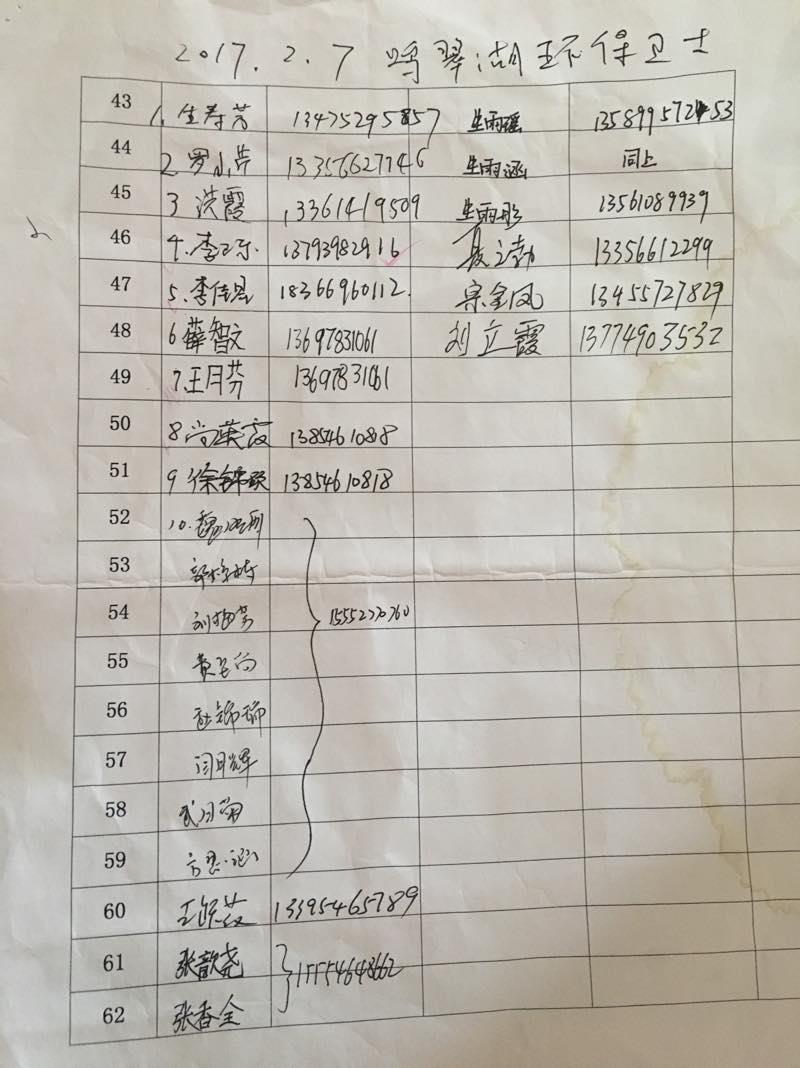 2017.2.7 鸣翠湖环保卫士
43 1. 生寿芳 13475295857 生雨瑶
44 2 罗小芹 13356627746 生雨涵 同上
45 3 洪霞 13361419509 生雨彤 13561089939
46 4. 李 13793982916 夏立勃 13356612299
47 5. 李佳 18366960112. 宗金凤 13455727829
48 6 薛智文 13697831061 刘立霞 13774903532
49 7. 王月芬 13697831061
50 8 尚英霞 13854610818
51 9 徐锦 13854610818
52 10. 魏
53
54 刘 15552270760
55 黄
56 杜锦瑞
57 闫明辉
58 武月菊
59 方思涵
60 王 13395465789
61 张歆尧 15554648662
62 张香全